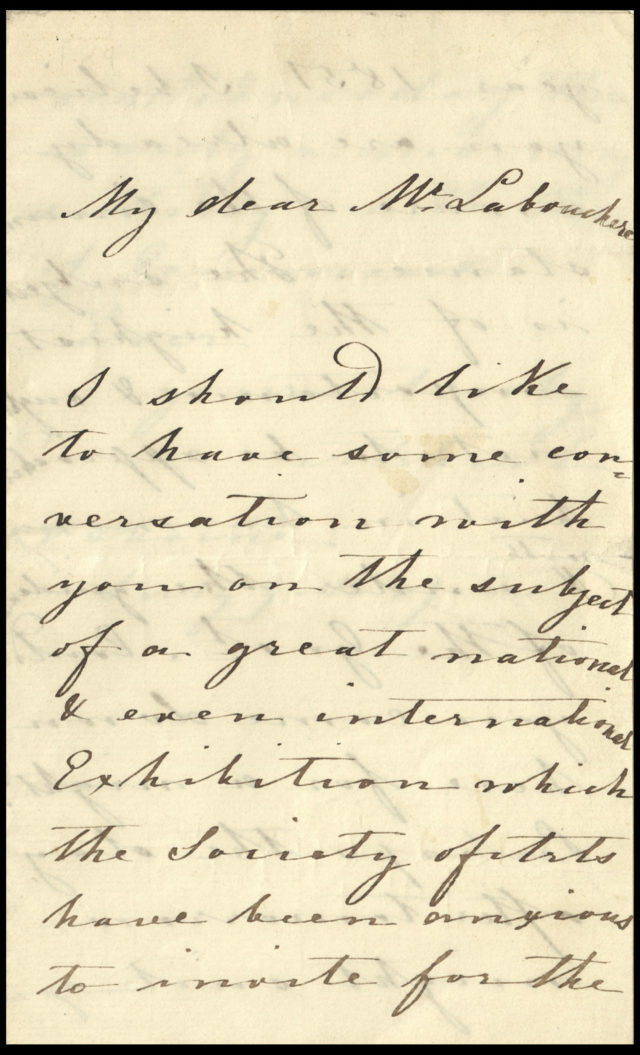 My dear Mr. Labouchere
I should like
to have some con=
versation with
you on the subject
of a great national
& even international
Exhibition which
the Society of Arts
have been anxious
to invite for the